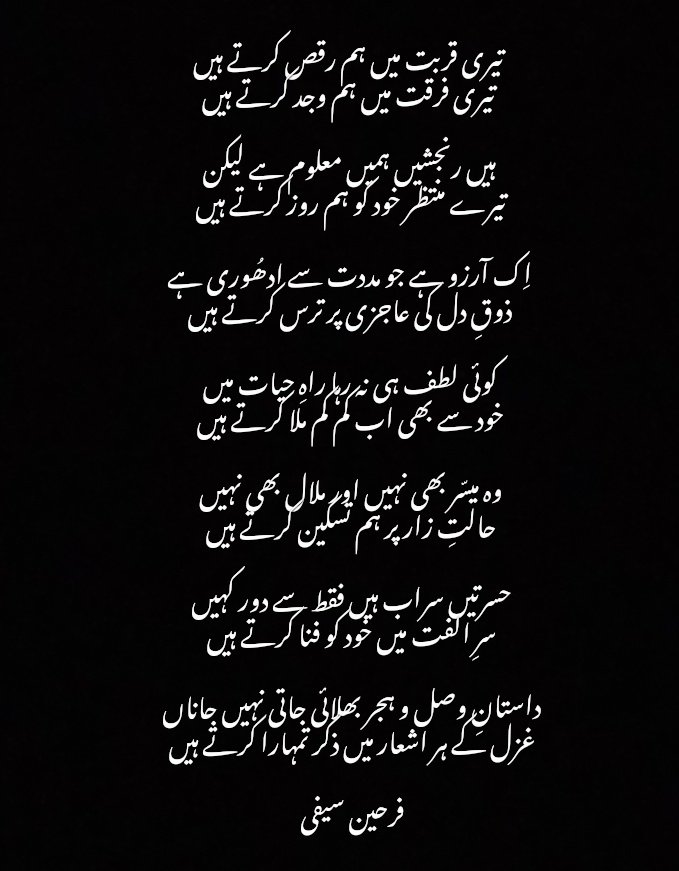 تیری قربت میں ہم رقص کرتے ہیں
تیری فرقت میں ہم وجد کرتے ہیں
ہیں رنجشیں ہمیں معلوم ہے لیکن
تیرے منتظر خود کو ہم روز کرتے ہیں
اِک آرزو ہے جو مددت سے ادھُوری ہے
ذوقِ دل کی عاجزی پر ترس کرتے ہیں
کوئی لطف ہی نہ رہا راہِ حیات میں
خود سے بھی اب کم کم ملا کرتے ہیں
وہ میسّر بھی نہیں اور ملال بھی نہیں
حالتِ زار پر ہم تسکین کرتے ہیں
حسرتیں سراب ہیں فقط سے دور کہیں
سرِ الفت میں خود کو فنا کرتے ہیں
داستانِ وصل و ہجر بھلائی جاتی نہیں جاناں
غزل کے ہر اشعار میں ذکر تمہارا کرتے ہیں
فرحین سیفی